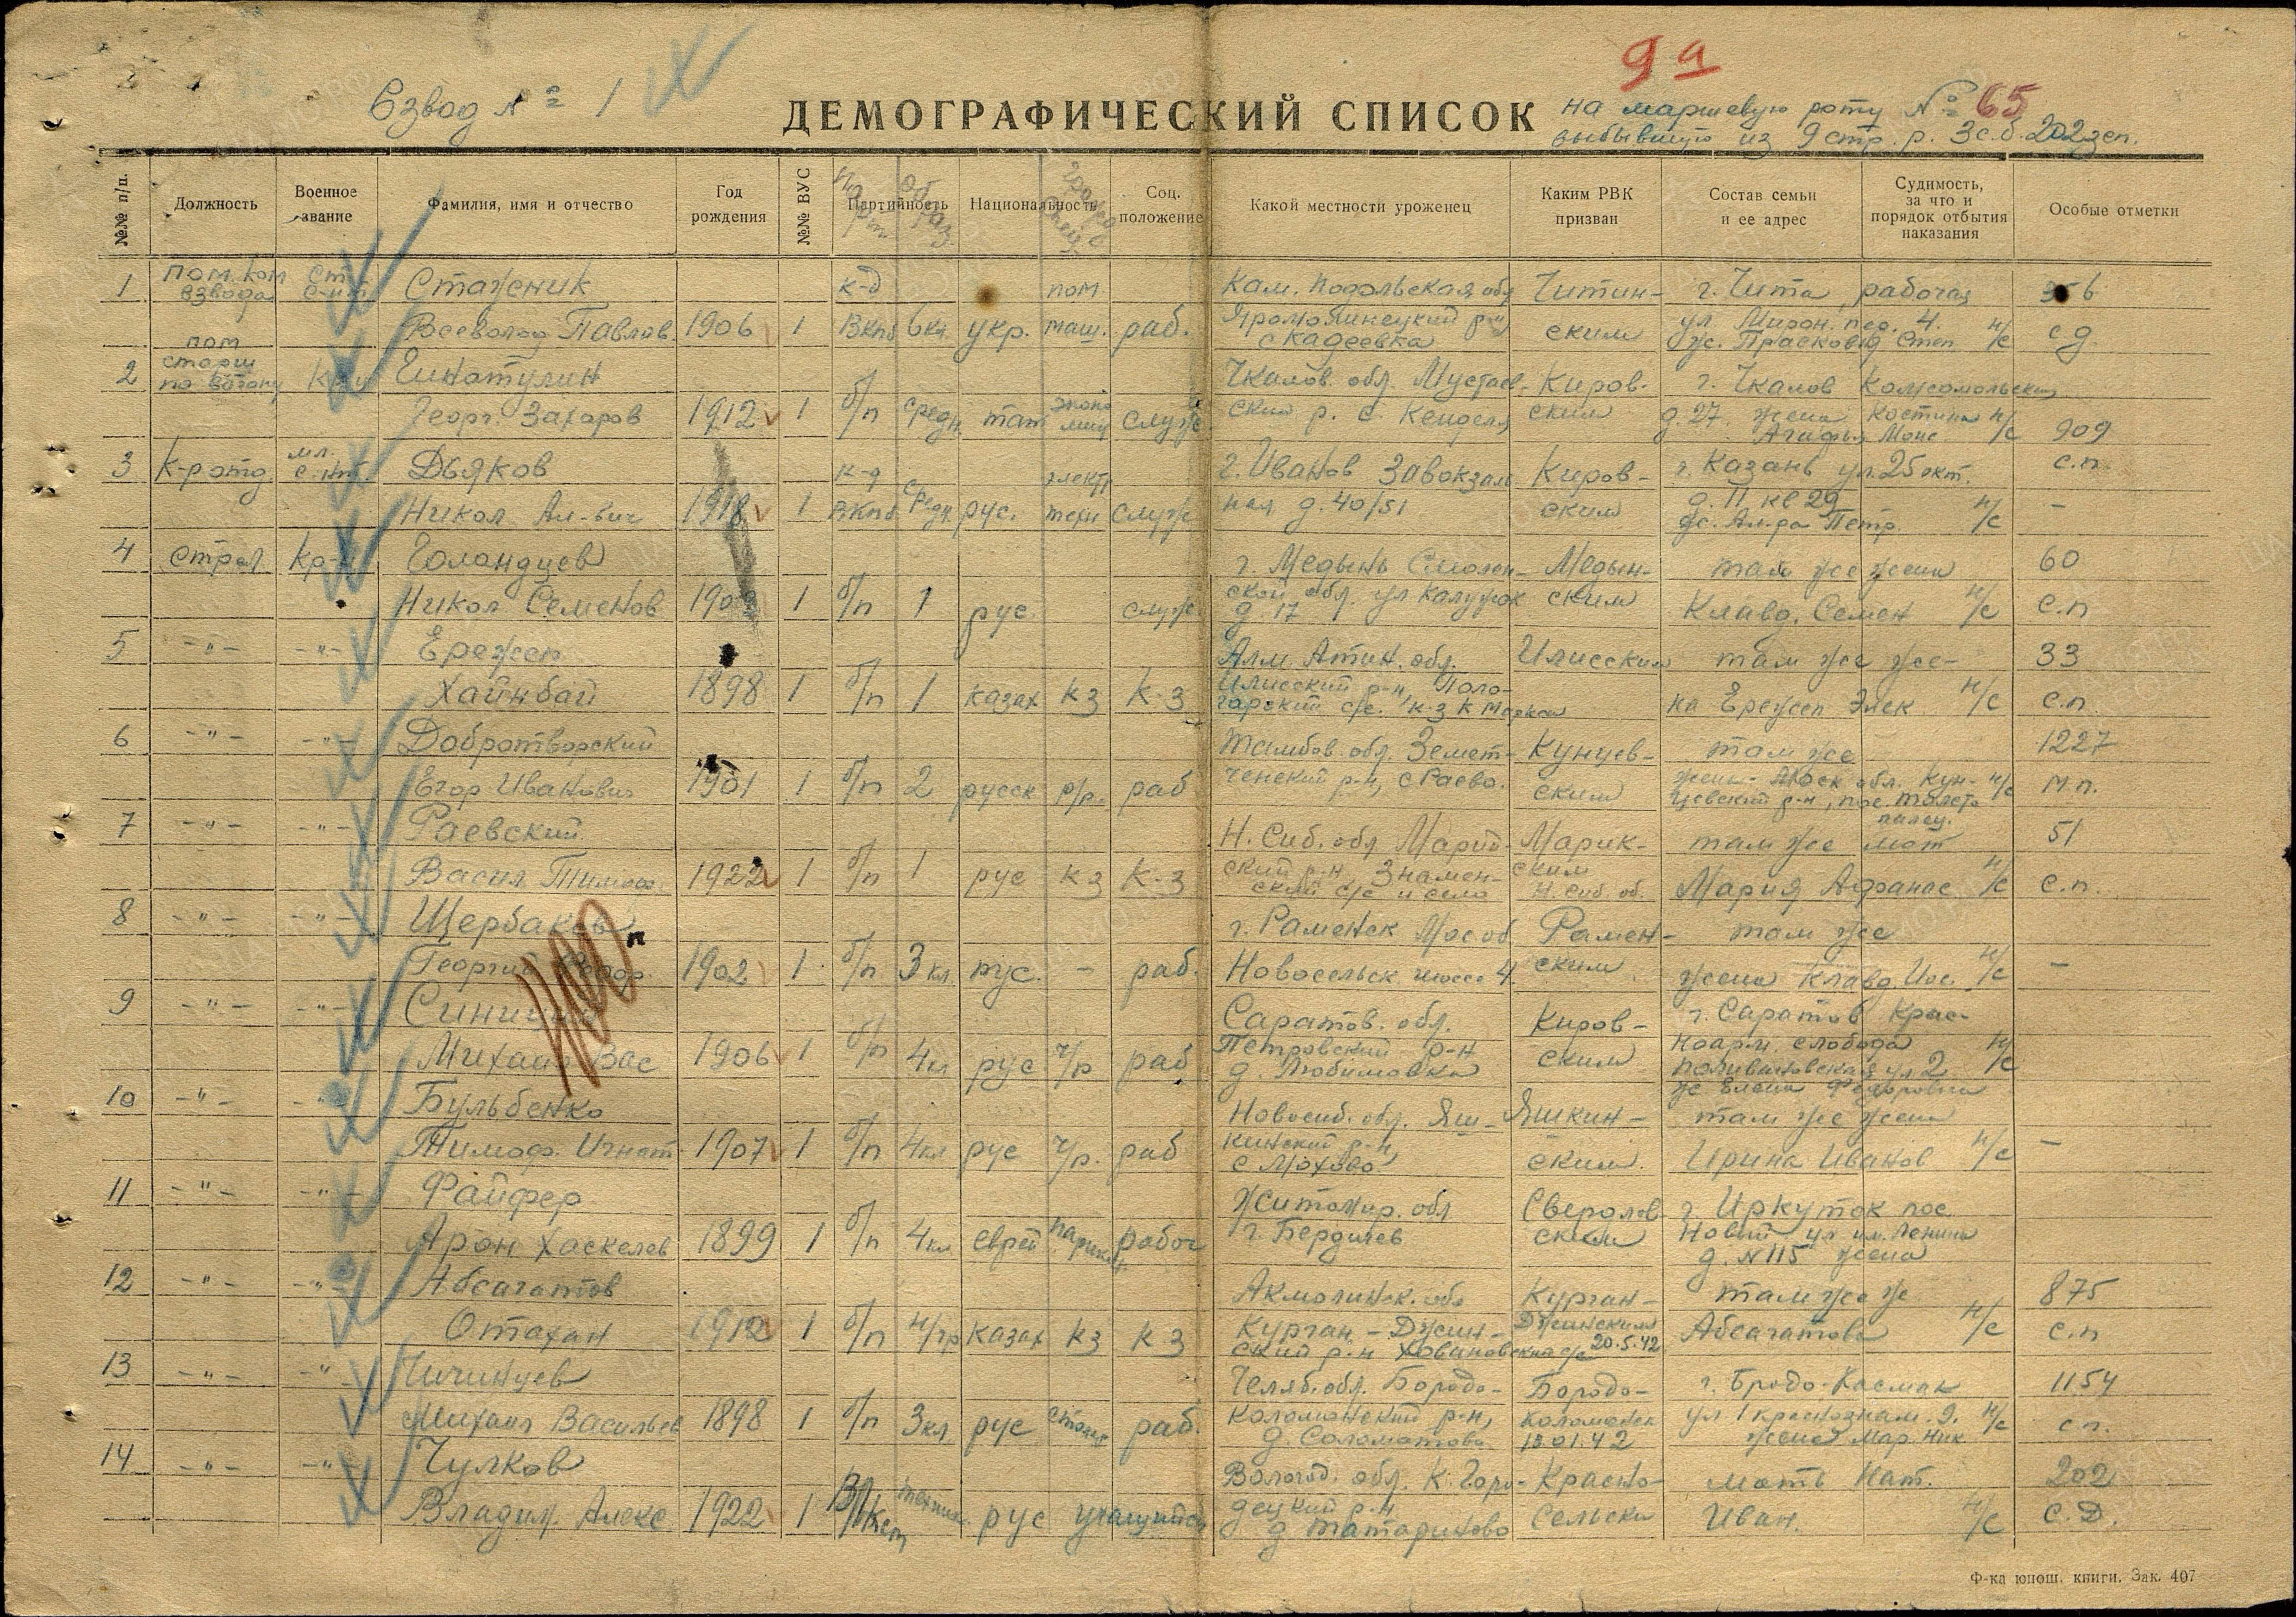 9а
Взвод № 1
ДЕМОГРАФИЧЕСКИЙ СПИСОК
на маршевую роту № 65
выбывшую из 9 стр. р. 3 с.б. 202 зсп.
№№ п/п.
Должность
Военное звание
Фамилия, имя и отчество
Год рождения
№№ ВУС
Партийность
Образ.
Национальность
Соц. положение
Какой местности уроженец
Каким РВК призван
Состав семьи и ее адрес
Судимость, за что и порядок отбытия наказания
Особые отметки
1 пом. ком Ст. Стаженик к-д пом Кам. Подольская обл Читин- г. Чита, рабочая
взвода с-нт Всеволод Павлов. 1906 1 ВКПб 6кл укр. маш. раб. Яромолинецкий р-н ским ул. Мирон. пер. 4. н/с сд
с Кадеевка ж. Прасковья Степ.
пом
2 старш Еинатулин Чкалов. обл. Мустаев- Киров- г. Чкалов Комсомольская
по вагону Георг. Захаров 1912 1 б/п средн. тат эконо служ ский р. с. Кенделя ским д. 27 жена Костина н/с 909
мист Агафья
3 к-р отд мл. Дьяков к-д электр г. Иванов Завокзаль Киров- г. Казань ул. 25 окт. с.п.
с-нт Никол Ал-вич 1918 1 ВКПб средн. рус. техн служ ная д. 40/51 ским д. 11 кв 29 н/с –
ж. Ал-ра Петр.
4 стрел кр-ц Голандцев г. Медынь Смолен- Медын- там же жена 60
Никол Семенов 1909 1 б/п 1 рус. служ. ской обл. ул Калужск ским Клавд. Семен н/с с.п
д. 17
5 -"- -"- Ережеп Алм. Атин. обл. Илисским там же же- 33
Хайнбай 1898 1 б/п 1 казах кз к-з Илисский р-н, на Ережеп н/с с.п.
с/с. к-з К Маркса
6 -"- -"- Добротворский Тамбов. обл. Земет- Кунцев- там же 1227
Егор Иванович 1901 1 б/п 2 русск р/р. раб ченский р-н, с Раево. ским жена - Моск обл. Кун- н/с м.п.
цевский р-н, пос. толсто
палец.
7 -"- -"- Раевский Н. Сиб. обл Марий- Марик- там же мат 51
Васил Тимоф 1922 1 б/п 1 рус кз к-з ский р-н, Знамен- ским Мария Афанас н/с с.п.
ский с/с и село Н. Сиб. об.
8 -"- -"- Щербаков г. Раменск Мос. об Рамен- там же
Георгий 1902 1 б/п 3 кл. рус. – раб. Новосельск шоссе 4. ским жена Клавд. Иос. н/с –
9 -"- -"- Саратов. обл. Киров- г. Саратов Крас-
Михаил Вас 1906 1 б/п 4кл рус ч/р раб Петровский р-н ским ноарм. слобода н/с
д. Любимовка Поливановская ул 2
ж Елена Федоровна
10 -"- -"- Бульбенко Новосиб. обл. Яш- Яшкин- там же жена
Тимоф. Игнат. 1907 1 б/п 4кл рус ч/р. раб кинский р-н, ским. Ирина Иванов н/с –
с Мохово
11 -"- -"- Файфер Житомир. обл Свердлов- г. Иркутск пос
Арон Хаскелев 1899 1 б/п 4кл еврей парикм. рабоч г. Бердичев ским Новый ул им. Ленина
д. N 115 жена
12 -"- -"- Абсагатов Акмолинск. обл Курган- там же ж 875
Отахан 1912 1 б/п н/гр казах кз кз Курган-Джин- Джинским Абсагатова н/с с.п
ский р-н 20.5.42
13 -"- -"- Чичинцев Челяб. обл. Бородо- Бородо- г. Бродо-Касмак 1154
Михаил Васильев 1898 1 б/п 3кл рус столяр раб. Коломакский р-н, ул 1 краснознам. 9. н/с с.п.
д. Соломатово 15.01.42 жена Мар. Ник
14 -"- -"- Чулков Вологод. обл. К. Горо- Красно- мать Нат. 202
Владим. Алекс 1922 1 рус учащийся децкий р-н сельски Иван. н/с с.д.
д Татариново
Ф-ка юнош. книги. Зак. 407